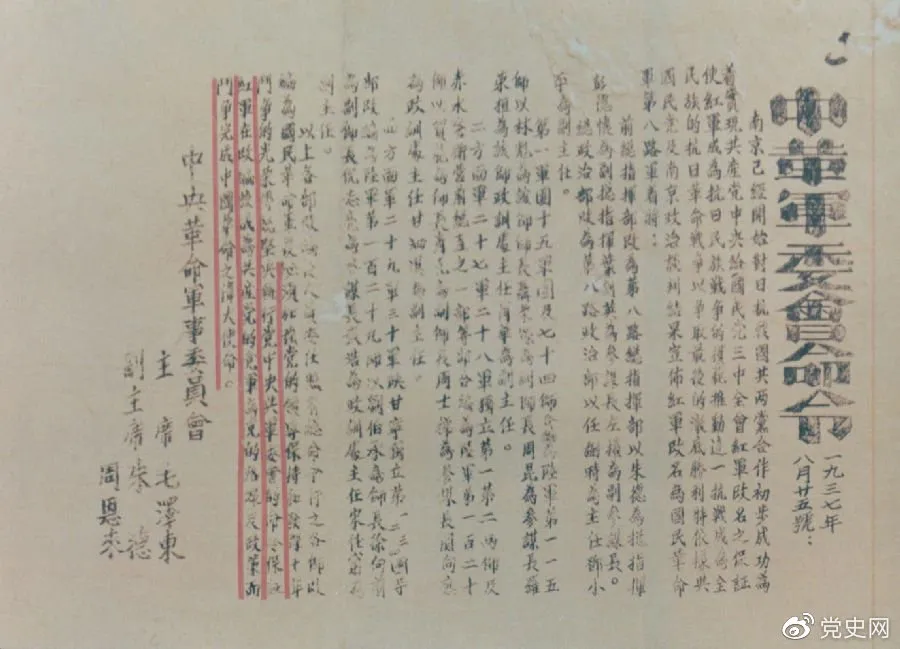 中革軍委會命令
一九三七年
八月廿五號：
南京已經開始對日抗戰國共兩黨合作初步成功為
着實現共產黨中央給國民党三中全會紅軍改名之保証
使紅軍成為抗日民族戰争的模範推動這一抗戰成為全
民族的抗日革命戰争以争取最後的澈底勝利特依據與
國民党及南京政治談判結果宣佈紅軍改名為國民革命
軍第八路軍着將：
前總指揮部改為第八路總指揮部以朱德為總指揮
彭德懷為副總指揮葉劍英為參謀長左權為副參謀長。
總政治部改為第八路政治部以任弼時為主任鄧小
平為副主任。
第一軍團十五軍團及七十四師陸軍第一一五
師以林彪為該師師長聶榮臻為副師長周昆為參謀長羅
榮桓為該師政訓處主任蕭華為副主任。
二方面軍二十七軍二十八軍獨立第一第二兩師及
赤水警衛營前總直之一部等部分編為陸軍第一百二十
師以賀龍為師長蕭克為副師長周士第為參謀長關向應
為政訓處主任甘泗淇為副主任。
四方面軍二十九軍三十軍陝甘寧獨立第一二三四等
師改編為陸軍第一百二十九師以劉伯承為師長徐向前
為副師長倪志亮為參謀長張浩為政訓處主任宋任窮為
副主任。
以上各部改編
編為國民革命軍後必須党的領導保持和發揚十年
鬥争的光榮堅決執行党中央與軍委會的命令保証
紅軍在改編後成為共產党的党軍為党的路線及政策而
鬥争完成中國革命之偉大使命。
中央革命軍事委員會
主席毛澤東
副主席朱德
周恩來
党史网